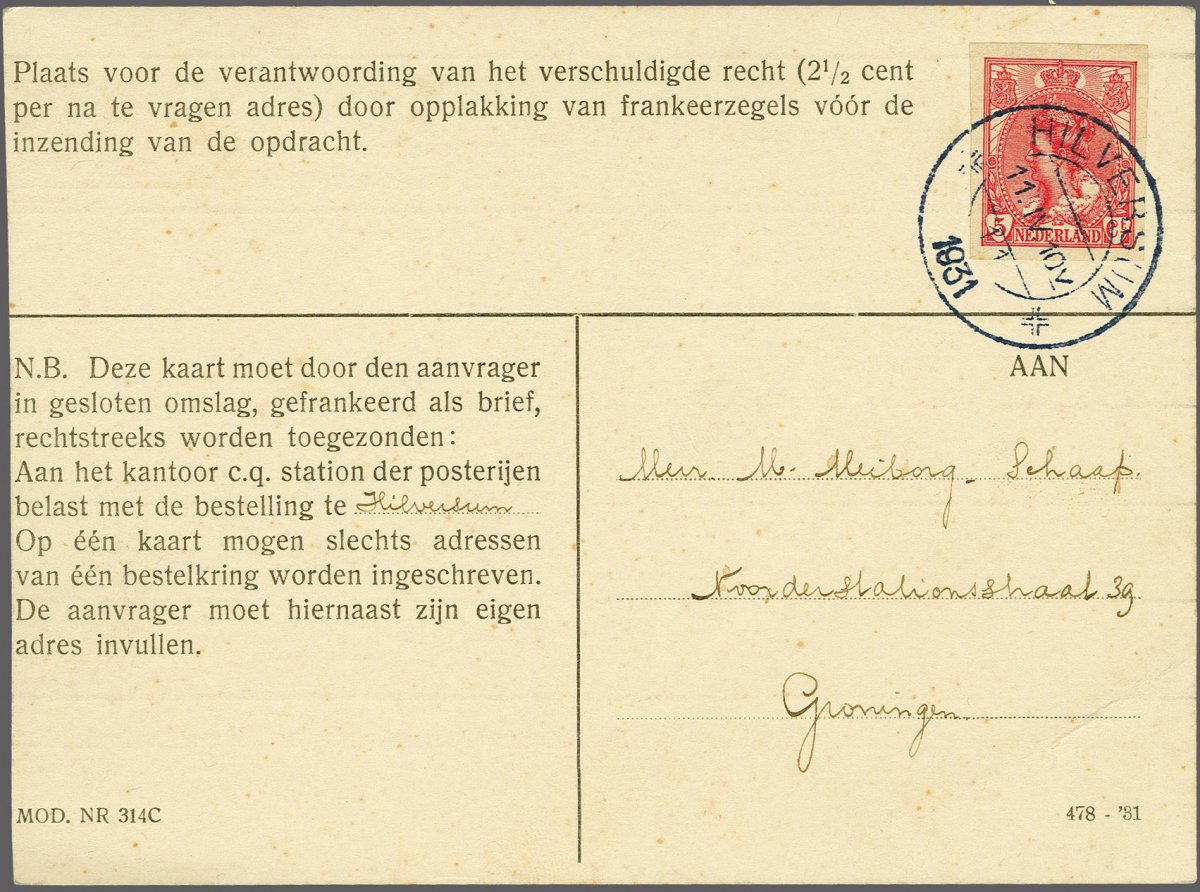 Plaats voor de verantwoording van het verschuldigde recht (2¹/₂ cent
per na te vragen adres) door opplakking van frankeerzegels vóór de
inzending van de opdracht.
5 NEDERLAND ct
HILVERSUM
11.IV 10V
1931
N.B. Deze kaart moet door den aanvrager
in gesloten omslag, gefrankeerd als brief,
rechtstreeks worden toegezonden:
Aan het kantoor c.q. station der posterijen
belast met de bestelling te Hilversum
Op één kaart mogen slechts adressen
van één bestelkring worden ingeschreven.
De aanvrager moet hiernaast zijn eigen
adres invullen.
MOD. NR 314C
AAN
M. Meiborg - Schaap.
Noorderstationsstraat 39
Groningen.
478 - '31